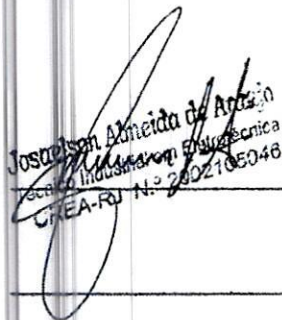 Josaelson Almeida de Araújo
Técnico Industrial em Eletrotécnica
CREA-RJ N.º 2002105046